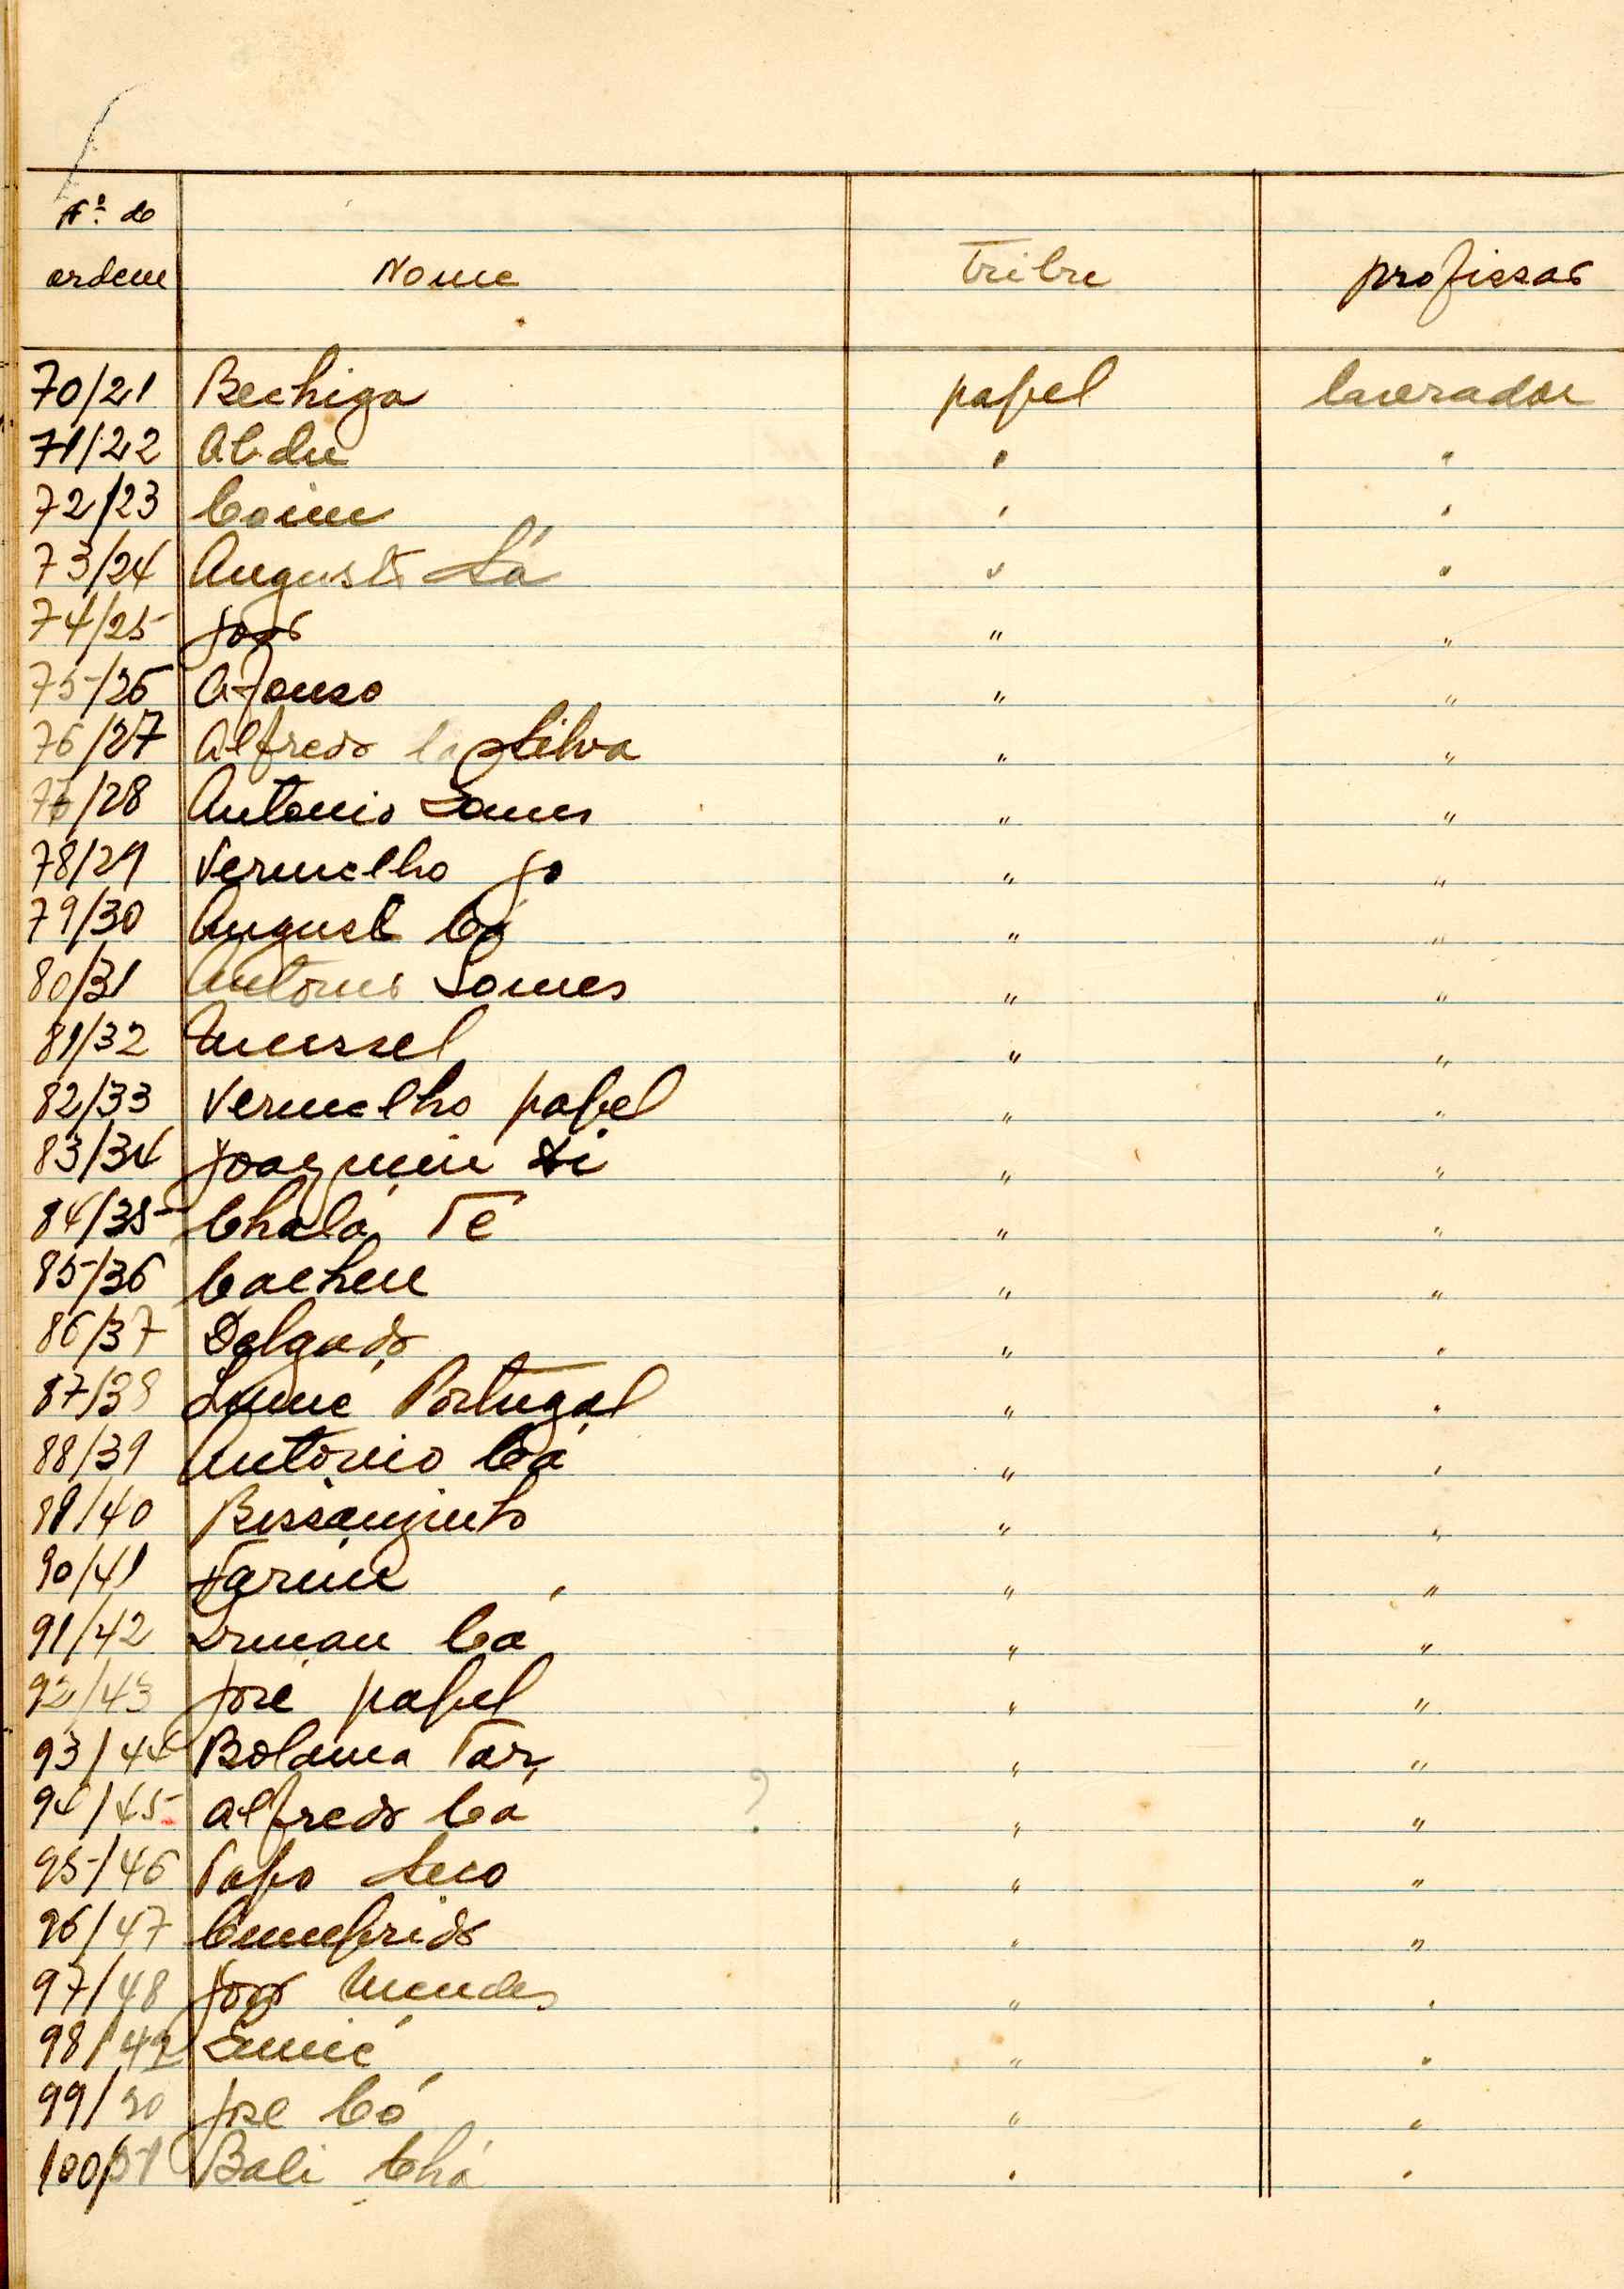 Nº de ordem Nome Tribu profissão
70/21 Bechiga papel lavrador
71/22 Abdu " "
72/23 Coim " "
73/24 Augusto Sá " "
74/25 João " "
75/26 Afonso " "
76/27 Alfredo da Silva " "
77/28 Antonio Gomes " "
78/29 Vermelho Jo " "
79/30 Augusto Cá " "
80/31 Antonio Gomes " "
81/32 " "
82/33 Vermelho papel " "
83/34 Joaquim Di " "
84/35 Chalá Té " "
85/36 " "
86/37 Delgado " "
87/38 Portugal " "
88/39 Antonio Cá " "
89/40 " "
90/41 " "
91/42 Cá " "
92/43 José papel " "
93/44 Bolama Tar " "
94/45 Alfredo Cá ? " "
95/46 Papo Seco " "
96/47 Cumprido " "
97/48 João Mendes " "
98/49 " "
99/50 José Có " "
100/51 Bali Chá " "